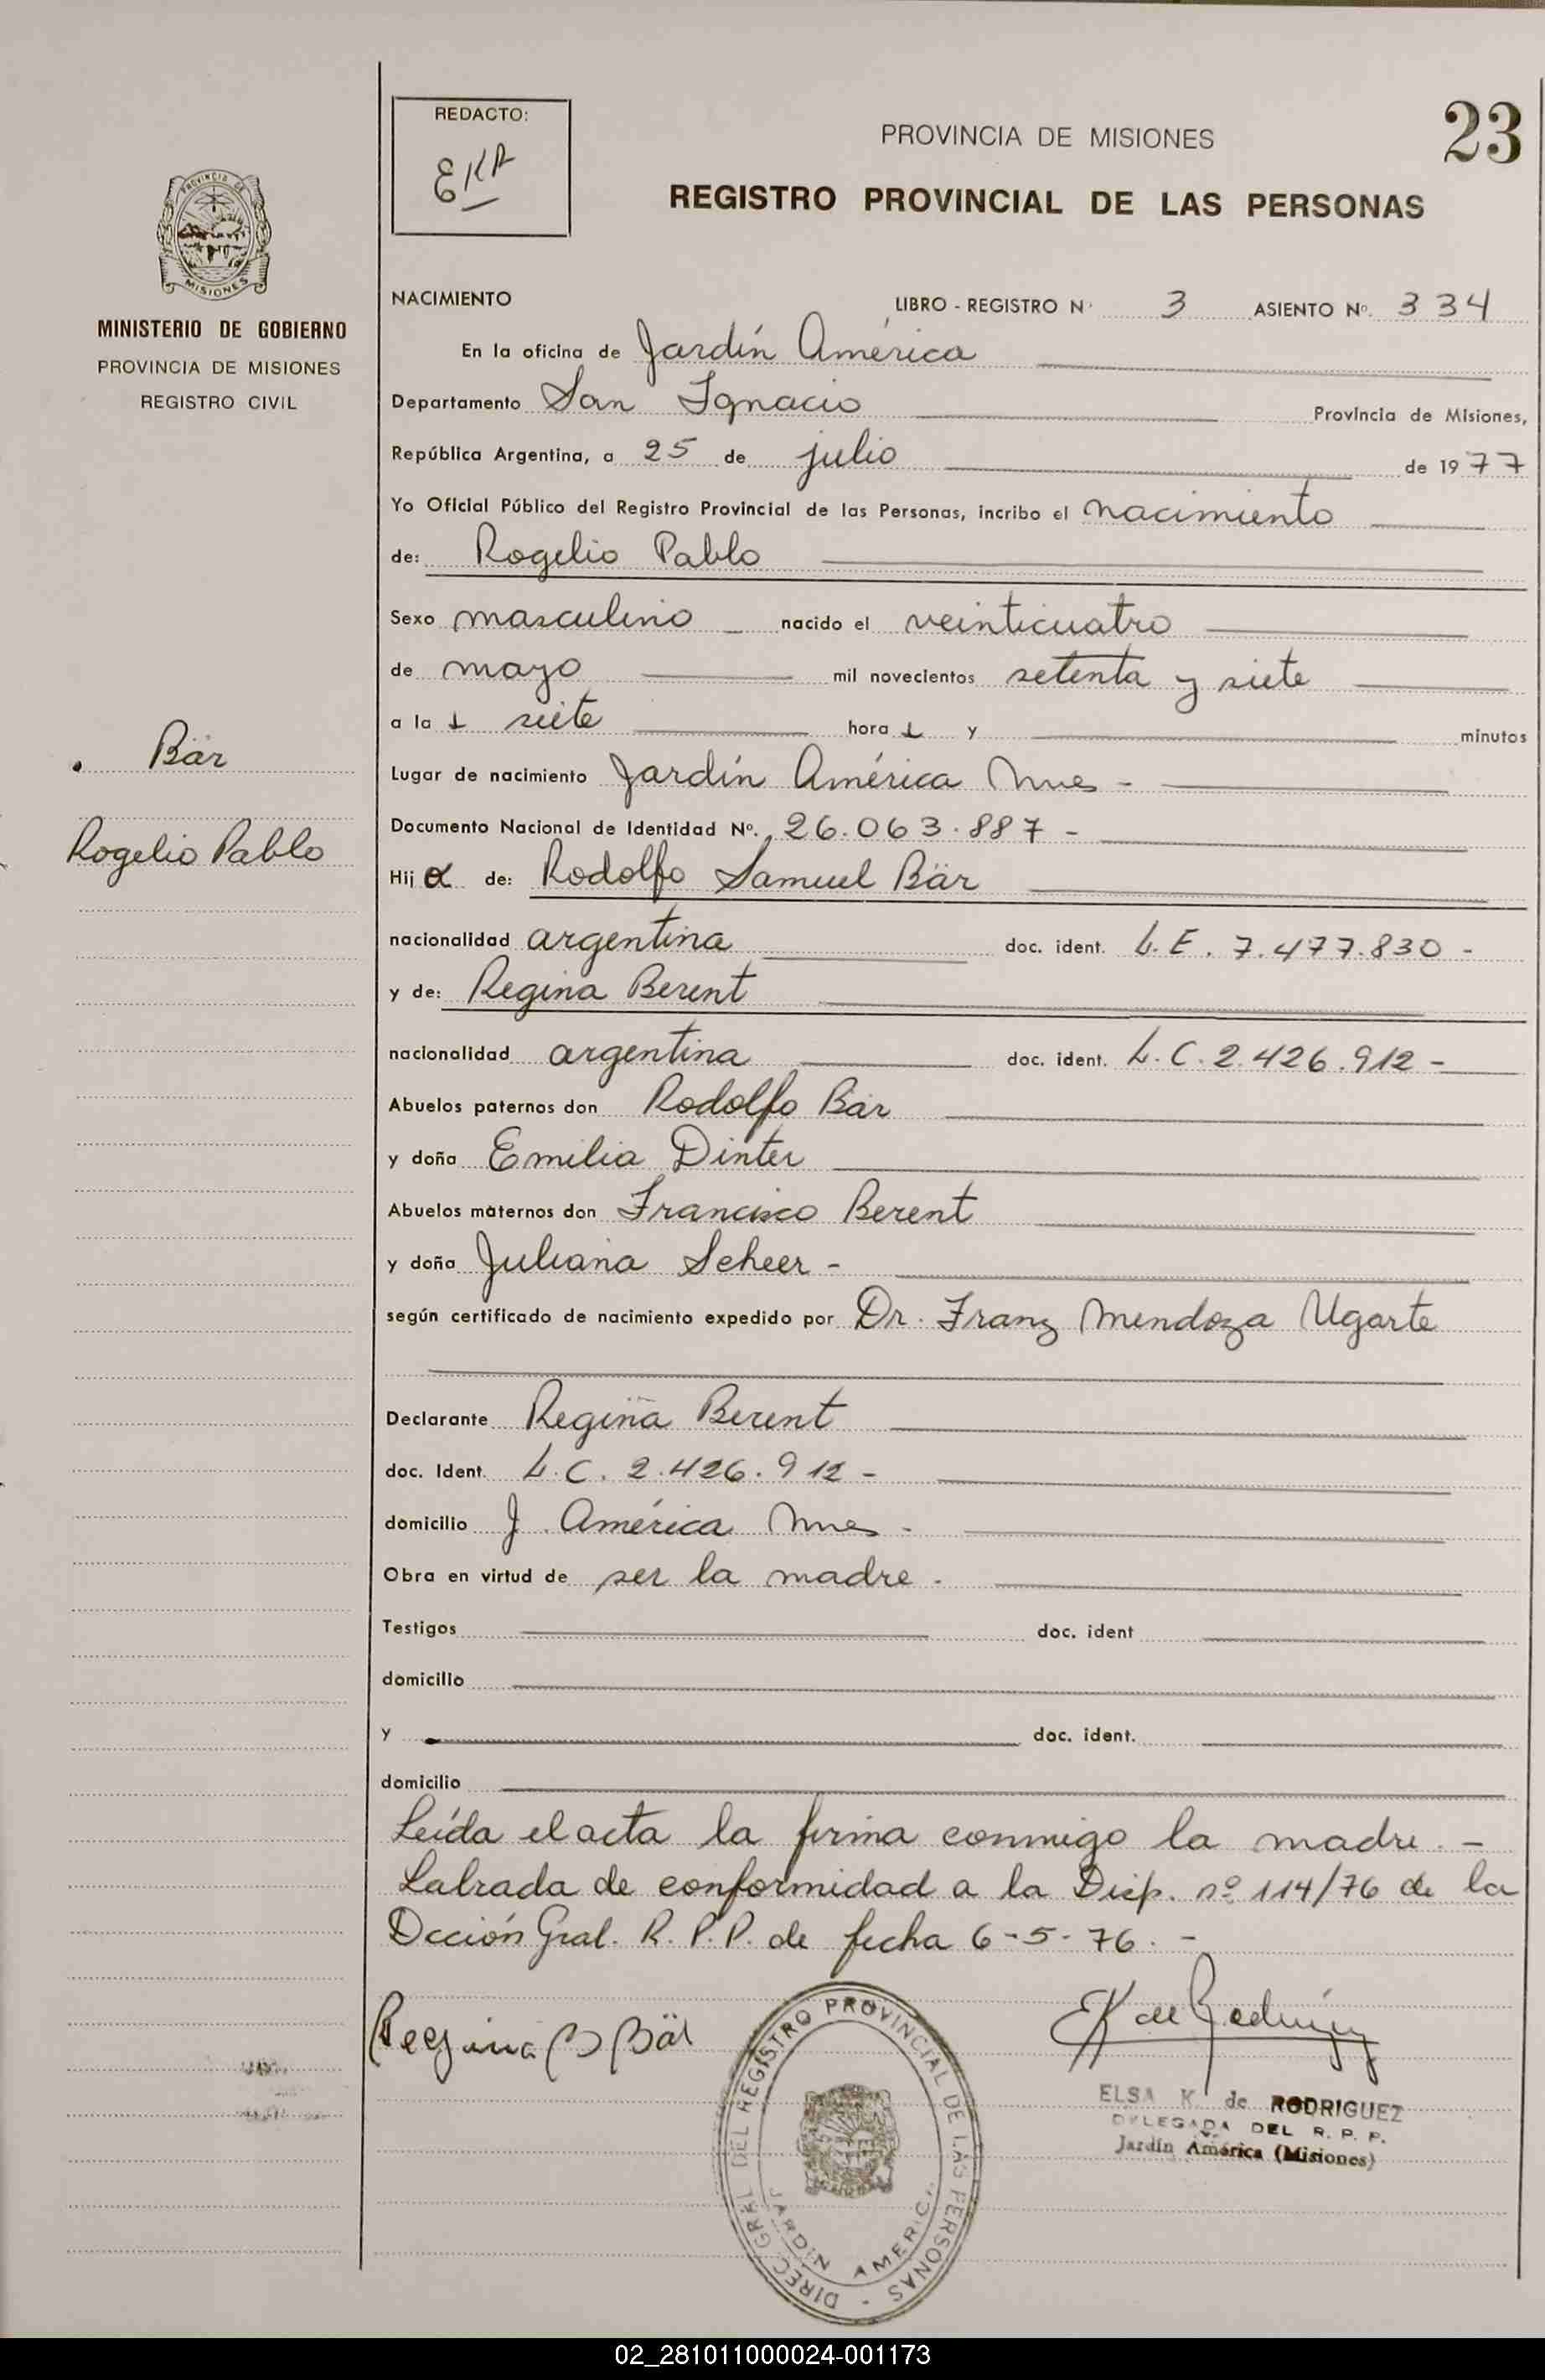 REDACTO:
EKR
PROVINCIA DE MISIONES
23
REGISTRO PROVINCIAL DE LAS PERSONAS
PROVINCIA DE MISIONES
MINISTERIO DE GOBIERNO
PROVINCIA DE MISIONES
REGISTRO CIVIL
NACIMIENTO LIBRO - REGISTRO N° 3 ASIENTO Nº. 334
En la oficina de Jardín América
Departamento San Ignacio Provincia de Misiones,
República Argentina, a 25 de julio de 1977
Yo Oficial Público del Registro Provincial de las Personas, incribo el nacimiento
de: Rogelio Pablo
Sexo masculino nacido el veinticuatro
de mayo mil novecientos setenta y siete
a la s siete hora s y minutos
Bär
Lugar de nacimiento Jardín América Mnes -
Documento Nacional de Identidad Nº. 26.063.887 -
Rogelio Pablo
Hij o de: Rodolfo Samuel Bär
nacionalidad argentina doc. ident. L.E. 7.477.830 -
y de: Regina Berent
nacionalidad argentina doc. ident. L.C. 2.426.912 -
Abuelos paternos don Rodolfo Bär
y doña Emilia Dinter
Abuelos maternos don Francisco Berent
y doña Juliana Scheer -
según certificado de nacimiento expedido por Dr. Franz Mendoza Ugarte
Declarante Regina Berent
doc. Ident. L.C. 2.426.912 -
domicilio J. América Mnes -
Obra en virtud de ser la madre -
Testigos doc. ident
domicilio
y doc. ident.
domicilio
Leída el acta la firma conmigo la madre. -
Labrada de conformidad a la Disp. nº 114/76 de la
Dcción Gral. R.P.P. de fecha 6-5-76. -
Regina B Bär
EK de Rodríguez
DIREC. GRAL. DEL REGISTRO PROVINCIAL DE LAS PERSONAS -
JARDIN AMERICA
ELSA K. de RODRIGUEZ
DELEGADA DEL R. P. P.
Jardín América (Misiones)
02_281011000024-001173